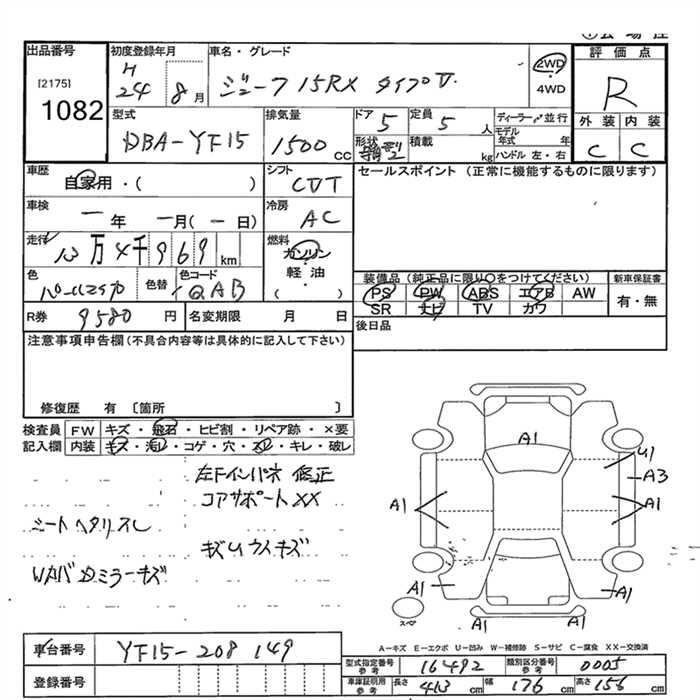 出品番号
[2175]
1082
初度登録年月
H
24 8月
車名・グレード
ジューク 15RX タイプV
2WD
4WD
評価点
R
外装 内装
C C
型式
DBA-YF15
排気量
1500 cc
ドア 5
形状
定員 5 人
積載 kg
ディーラー・並行
モデル年式 年
ハンドル 左・右
車歴
自家用・( )
シフト
CVT
セールスポイント (正常に機能するものに限ります)
車検
一年 一月(一日)
冷房
AC
走行
万4千969km
燃料
ガソリン
軽油
( )
色
色替
色コード
QAB
装備品 (純正品に限り○をつけてください)
PS PW ABS エアB AW
SR ナビ TV カワ
新車保証書
有・無
R券 9580 円
名変期限 月 日
後日品
注意事項申告欄(不具合内容等は具体的に記入して下さい)
修復歴 有 〔箇所 〕
検査員 FW キズ・飛石・ヒビ割・リペア跡・×要
記入欄 内装 キズ・汚レ・コゲ・穴・スレ・キレ・破レ
左フインパネ 修正
コアサポートXX
シートヘタリスレ
キズUウスキズ
ミラーキズ
A1
U1
A3
A1
A1
A1
A1
A1
スペア
A-キズ E-エクボ U-凹み W-補修跡 S-サビ C-腐食 XX-交換済
車台番号 YF15-208149
登録番号
型式指定番号 参考 16492
類別区分番号 参考 0005
車庫証明用 参考 長さ 413 cm 幅 176 cm 高さ 156 cm